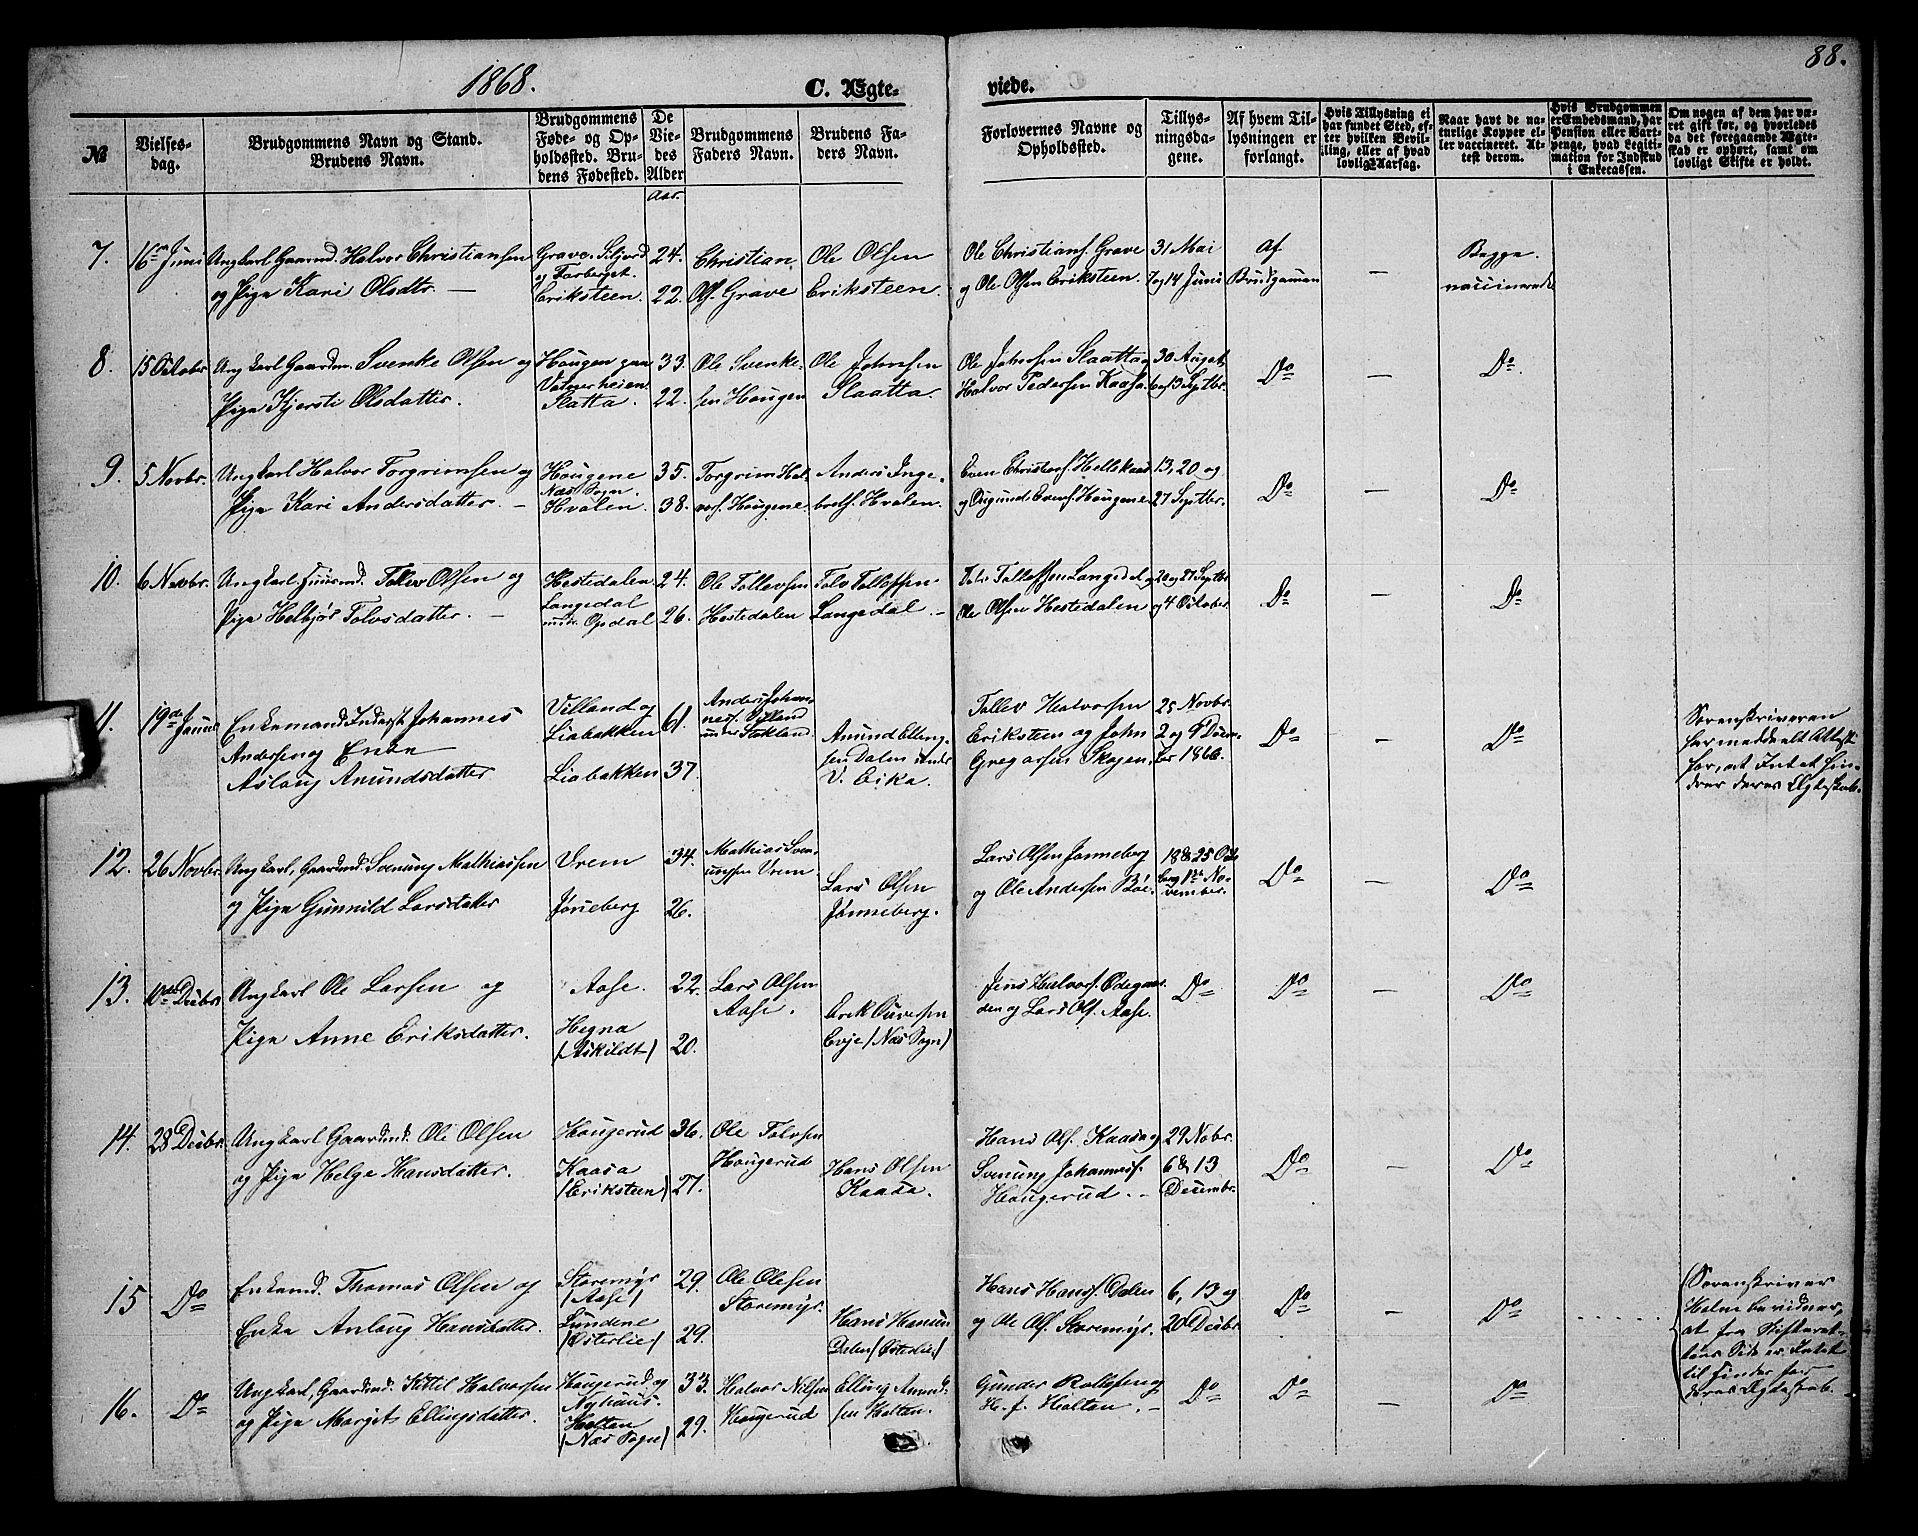 1868.
C. Ægte-
viede.
88.
№
Vielses-
dag.
Brudgommens Navn og Stand.
Brudens Navn.
Brudgommens
Føde- og Op-
holdssted. Bru-
dens Fødested.
De
Vie-
des
Alder
Aar.
Brudgommens
Faders Navn.
Brudens Fa-
ders Navn.
Forlovernes Navne og
Opholdssted.
Tillys-
ningsda-
gene.
Af hvem Til-
lysningen er
forlangt.
Hvis Tillysning ei
har fundet Sted, ef-
ter hvilken Bevil-
ling, eller af hvad
lovlig Aarsag.
Naar havt de na-
turlige Kopper el-
ler vaccineret. At-
test derom.
Hvis Brudgommen
er Embedsmand, har
Pension eller Vart-
penge, hvad Legiti-
mation for Indskud
i Enkecassen.
Om nogen af dem har væ-
ret gift før, og hvorledes
da det foregaaende Ægte-
skab er ophørt, samt om
lovligt Skifte er holdt.
7. 16 Juni Ungkarl Gaarmd. Halvor Christiansen
og Pige Kari Olsdtr. —
Grave. Siljord
og Farberget.
Eriksteen.
24.
22.
Christian
Ols. Grave
Ole Olsen
Eriksteen.
Ole Christians. Grave
og Ole Olsen Eriksteen.
31 Mai
7 og 14 Juni
Af
Brudgommen
—
Begge
vaccinerede
8. 15 October Ungkarl Gaardm. Svenke Olsen og
Pige Kjersti Olsdatter.
Hougen paa
Valmerheien.
Slatta.
33.
22.
Ole Svenke-
sen Hougen
Ole Johnsen
Slaatta.
Ole Johnsen Slaatta og
Halvor Pedersen Kaasa.
30 August,
6 og 13 Septbr.
Do
—
Do.
9. 5 Novbr. Ungkarl Halvor Torgrimsen og
Pige Kari Andersdatter. —
Hougene
Næs Sogn.
Hvalen.
35.
38.
Torgrim Hal-
vors. Hougene.
Anders Inge-
brets. Hvalen.
Even Christoff. Hellekaas
og Osmund Evens. Hougene.
13, 20 og
27 Septbr.
Do
—
Do
10. 6 Novbr. Ungkarl. Tollev Olsen og
Pige Helbjør Tolvsdatter. —
Hestedalen
Langedal
under Opdal
24.
26.
Ole Tollevsen
Hestedalen
Tolv Tollefsen
Langedal. —
Tolv Tollefsen Langedal og
Ole Olsen Hestedalen
20 og 27 Septbr.
og 4 October.
Do
—
Do
11. 19de Enkemand Inderst Johannes
Andersen og Enke
Aslaug Amundsdatter
Villand og
Liabakken
Liabakken
61.
37.
Anders Johan-
nes. Villand
under
Amund Elling-
sen Dalen under
V. Eika.
Tollev Halvorsen
Eriksteen og John
Gregarsen Skogen.
25 Novbr.
2 og 9 Decem-
ber 1866.
Do
—
Do
Sorenskriveren
har meddeelt Attest
for, at Intet hin-
drer deres Ægteskab.
12. 26 Novbr. Ungkarl, Gaardmd. Svenung Mathiassen
og Pige Gunnild Larsdatter
Vrem
Jønneberg
34.
26.
Mathias Sven-
ungsen Vrem
Lars Olsen
Jønneberg.
Lars Olsen Jønneberg
og Ole Andersen Bøe.
18 & 25 Octo-
ber og 1ste No-
vember.
Do
—
Do
13. 10de Decbr. Ungkarl Ole Larsen og
Pige Anne Eriksdatter.
Aase.
Hegna
(Askildt)
22.
20.
Lars Olsen
Aase.
Erik Ouversen
Evje (Næs Sogn)
Jens Halvors. Ødegaar-
den og Lars Ols. Aase.
Do
Do
—
Do
14. 28 Decbr. Ungkarl Gaardmd. Ole Olsen
og Pige Helge Hansdatter.
Hougerud
Kaasa
(Eriksteen)
36.
27.
Ole Tolvsen
Hougerud
Hans Olsen
Kaasa.
Hans Ols. Kaasa og
Svenung Johanness.
Hougerud. —
29 Nobr.
6 & 13
Decembr.
Do
—
Do
15 Do Enkemd. Thomas Olsen og
Enke Anlaug Hansdatter.
Storemyr
(Aase)
Lundene
(Østerlie)
29.
29.
Ole Olesen
Storemyr.
Hans Hansen
Dalen (Østerlie)
Hans Hans. Dalen
og Ole Ols. Storemyr.
6, 13 og
20 Decbr.
Do
—
Do
(Sorenskriver
Holm bevidner,
at fra Skifteret-
tens Side er Intet
til Hinder for
deres Ægteskab.
16. Do Ungkarl, Gaardmd. Kittil Halvorsen
og Pige Margit Ellingsdatter.
Hougerud og
Nyhuus.
Holtan
(Næs Sogn)
33.
29.
Halvor Nilsen
Hougerud
Elling Amund-
sen Holtan.
Gunder Rollefsen og
H. J. Holtan. —
Do
Do
—
Do